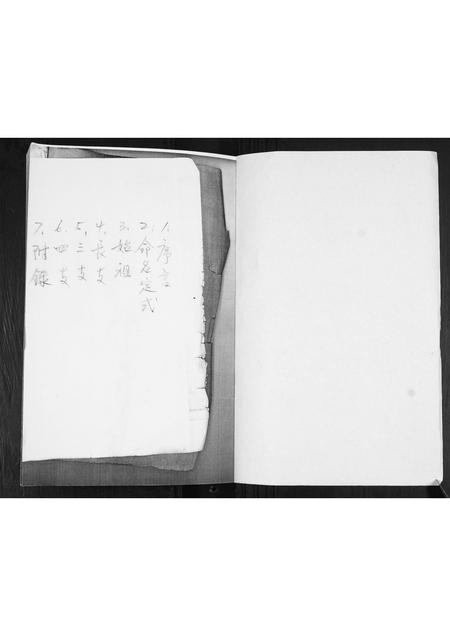 1.序言
2.命名定式
3.始祖
4.長支
5.三支
6.四支
7.附錄